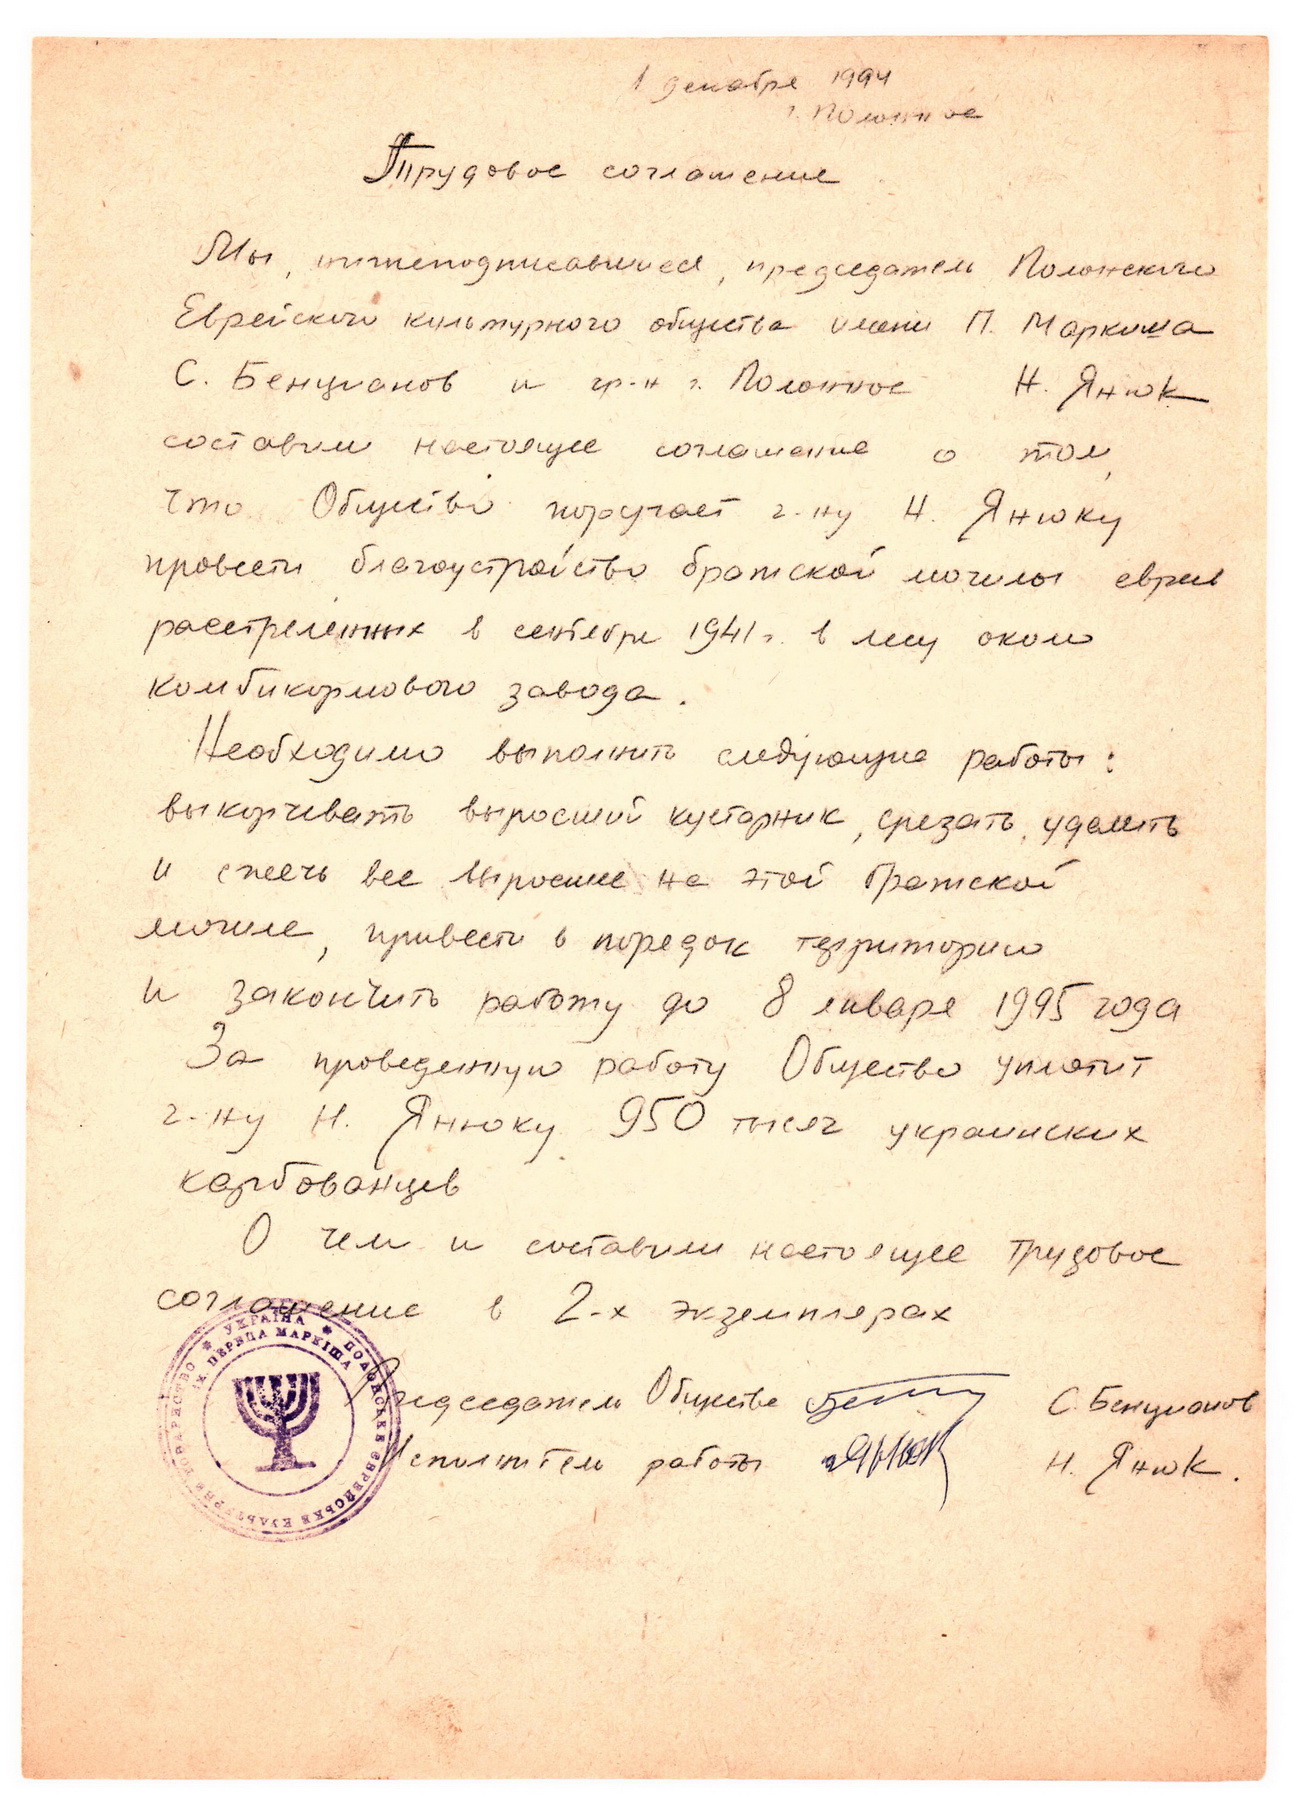 1 декабря 1994
г. Полонное
Трудовое соглашение
Мы, нижеподписавшиеся, председатель Полонского
Еврейского культурного общества имени П. Маркиша
С. Бенцианов и гр-н г. Полонное Н. Янюк
составили настоящее соглашение о том,
что Общество поручает г-ну Н. Янюку
провести благоустройство братской могилы евреев
расстреленных в сентябре 1941 г. в лесу около
комбикормового завода.
Необходимо выполнить следующие работы:
выкорчевать выросший кустарник, срезать, удалить
и сжечь все выросшее на этой братской
могиле, привести в порядок территорию
и закончить работу до 8 января 1995 года
За проведенную работу Общество уплатит
г-ну Н. Янюку 950 тысяч украинских
карбованцев
О чем и составили настоящее трудовое
соглашение в 2-х экземплярах
Председатель Общества С. Бенцианов
Исполнитель работы Янюк Н. Янюк.
УКРАЇНА * ПОЛОНСЬКЕ ЄВРЕЙСЬКЕ КУЛЬТУРНЕ ТОВАРИСТВО *
ІМ. ПЕРЕЦА МАРКІША